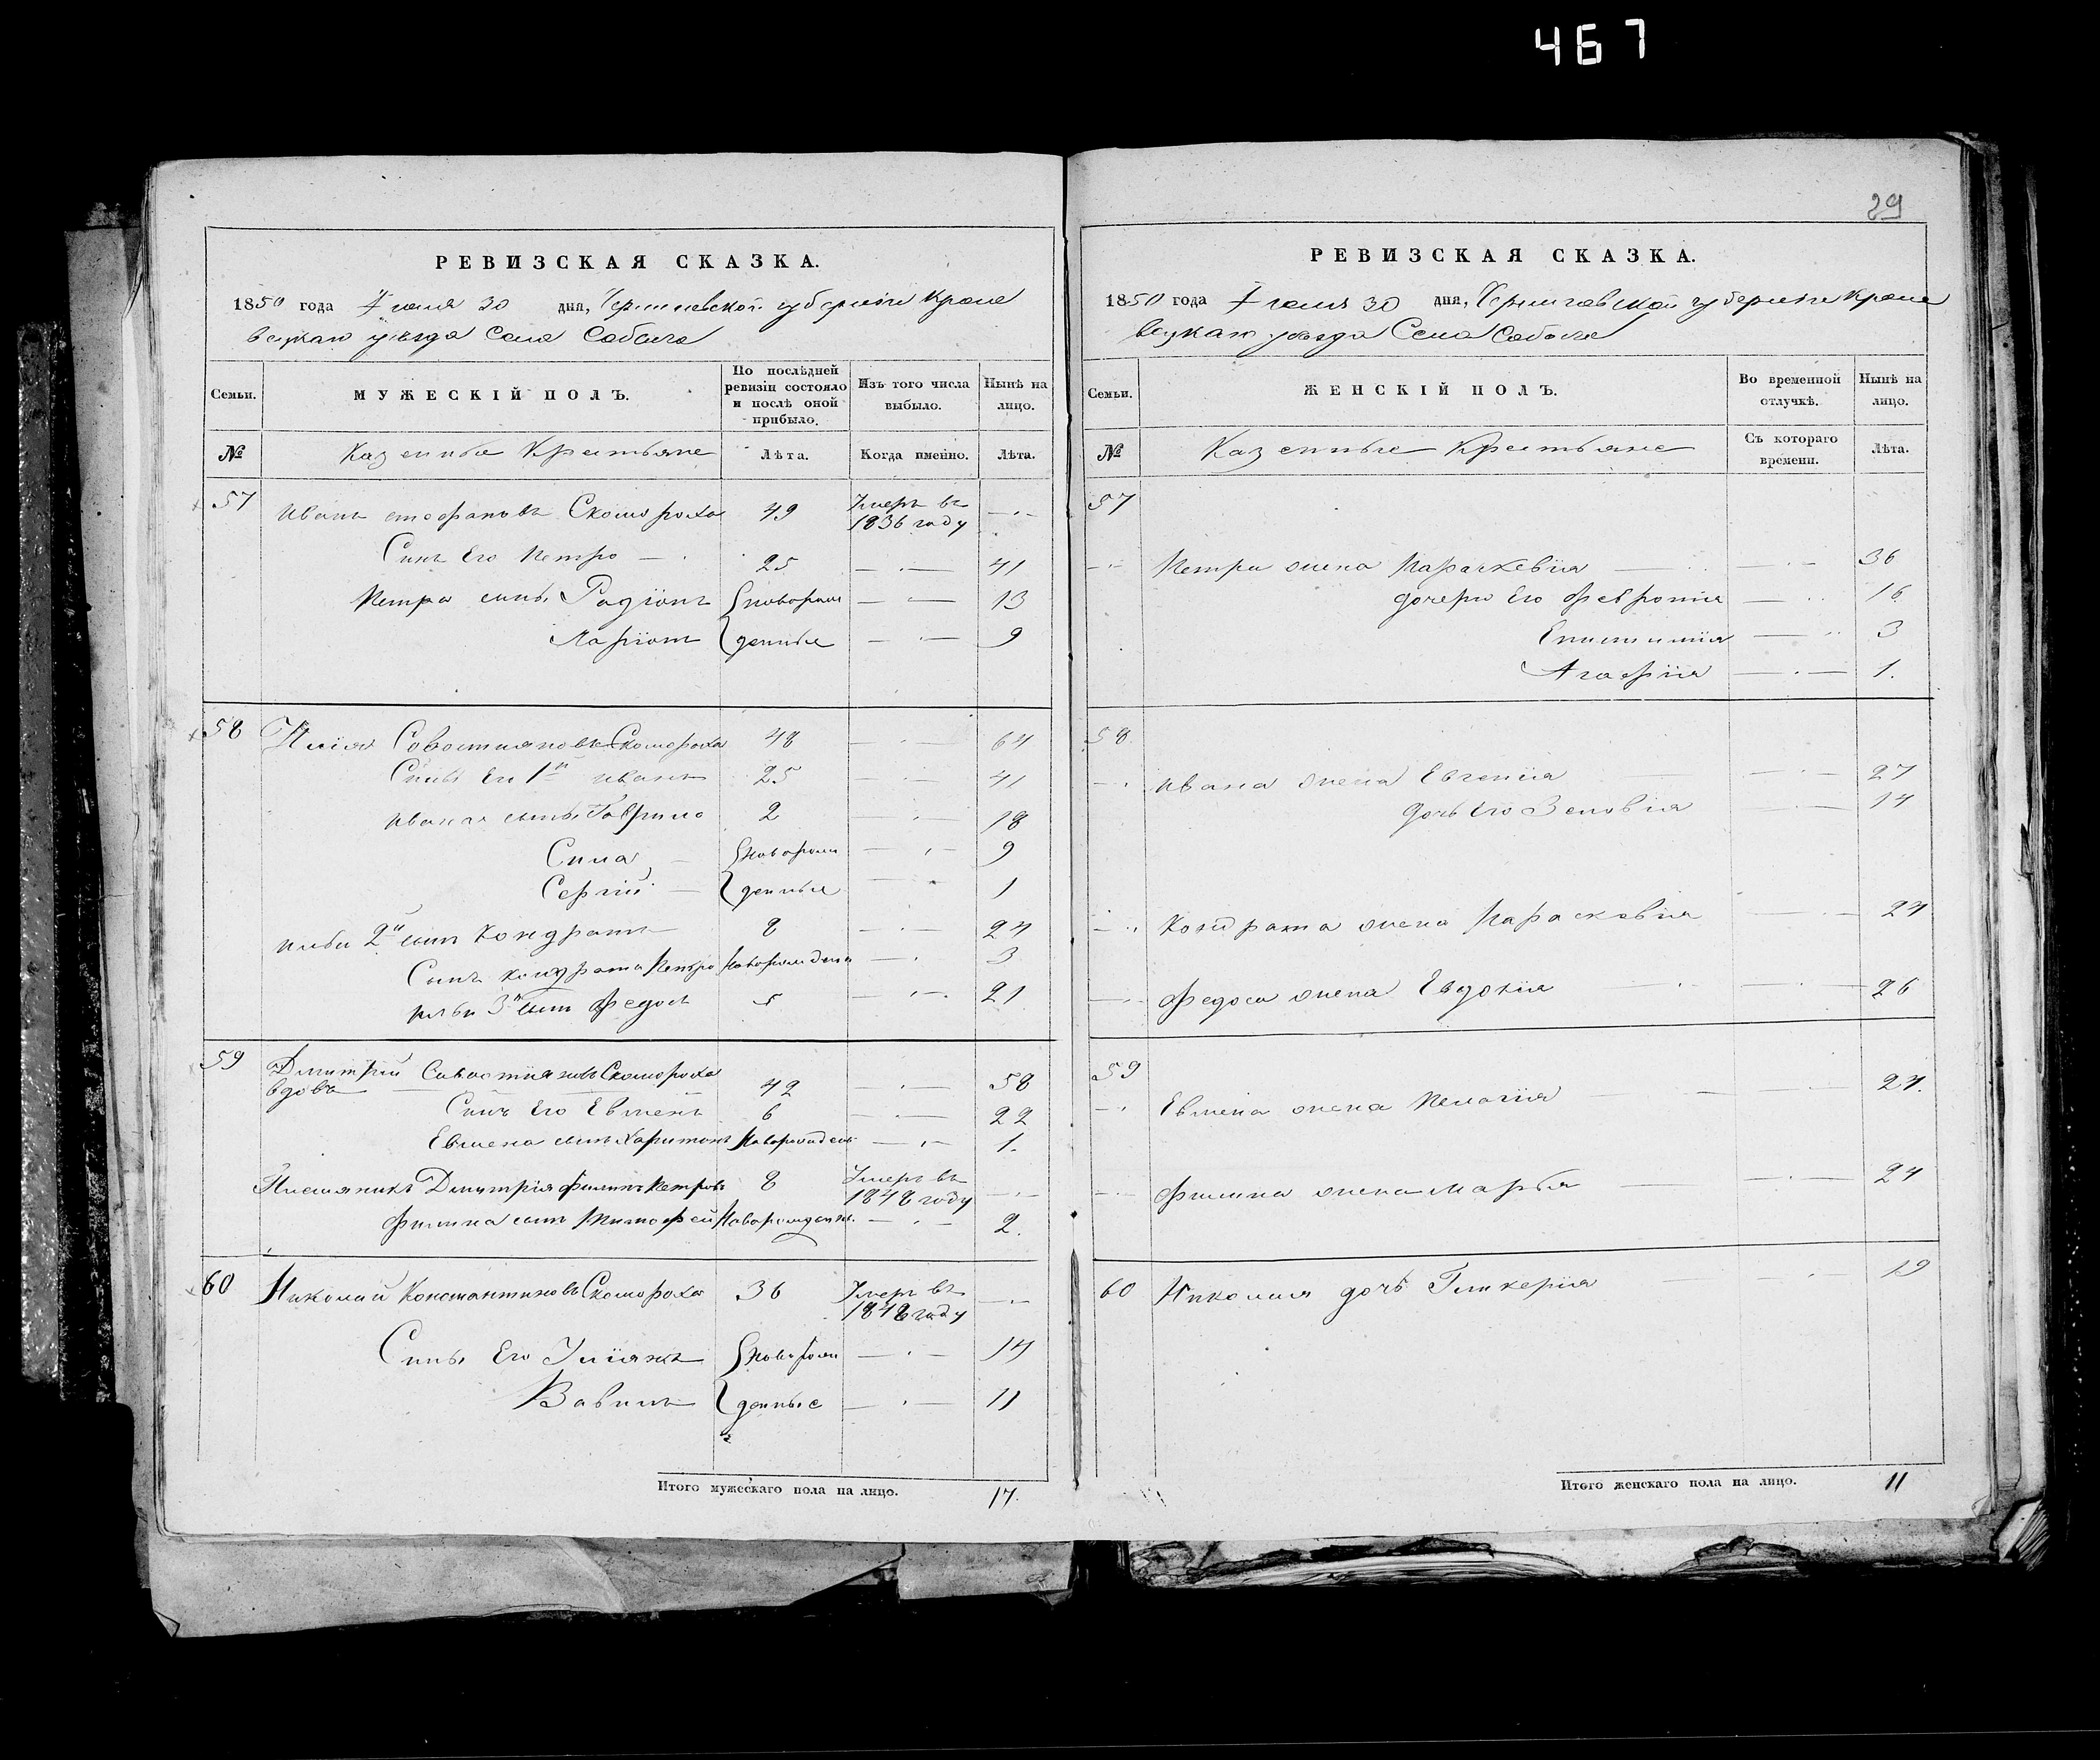 467
РЕВИЗСКАЯ СКАЗКА.
1850 года Іюля 30 дня, Черниговской губерніи Кроле
вецкаго уѣзда Села Собыча
Семьи.
МУЖЕСКІЙ ПОЛЪ.
По послѣдней
ревизіи состояло
и послѣ оной
прибыло.
Изъ того числа
выбыло.
Нынѣ на
лицо.
№
Казенные Крестьяне
Лѣта.
Когда именно.
Лѣта.
57 Иванъ Стефановъ Скомороха 49 Умеръ въ 1836 году
Сынъ Его Петро 25 41
Петра сынъ Радіонъ новорож 13
Ларіонъ денные 9
58 Илія Совостияновъ Скомороха 48 64
Сынъ Его 1й Иванъ 25 41
Ивана сынъ Гаврило 2 18
Сила новорож 9
Сергій денные 1
Ильи 2й сынъ Кондратъ 8 24
Сынъ Кондрата Петро Новорожден 3
Ильи 3й сынъ Федосъ 5 21
59 Дмитрій Савостияновъ Скомороха 42 58
вдовъ
Сынъ Его Евменъ 6 22
Евмена сынъ Харитонъ Новорожден 1.
Племяникъ Дмитрія Филипъ Петровъ 8 Умеръ въ 1848 году
Филипа сынъ Тимофей Новорожден 2.
60 Николай Константиновъ Скомороха 36 Умеръ въ 1848 году
Сынъ Его Уліянъ новорож 14
Вавилъ денные 11
Итого мужескаго пола на лицо. 17.
29
РЕВИЗСКАЯ СКАЗКА.
1850 года Іюля 30 дня, Черниговской губерніи Кроле
вецкаго уѣзда Села Собыча
Семьи.
ЖЕНСКІЙ ПОЛЪ.
Во временной
отлучкѣ.
Нынѣ на
лицо.
№
Казенные Крестьяне
Съ котораго
времени.
Лѣта.
57
Петра жена Параскевія 36
дочери Его Февронія 16
Епистимія 3
Агафія 1.
58
Ивана жена Евгенія 27
дочь Его Зеновія 14
Кондрата жена Параскевія 24
Федоса жена Евдокія 26
59
Евмена жена Пелагія 24.
Филипа жена Марья 24
60 Николая дочь Гликерія 19
Итого женскаго пола на лицо. 11